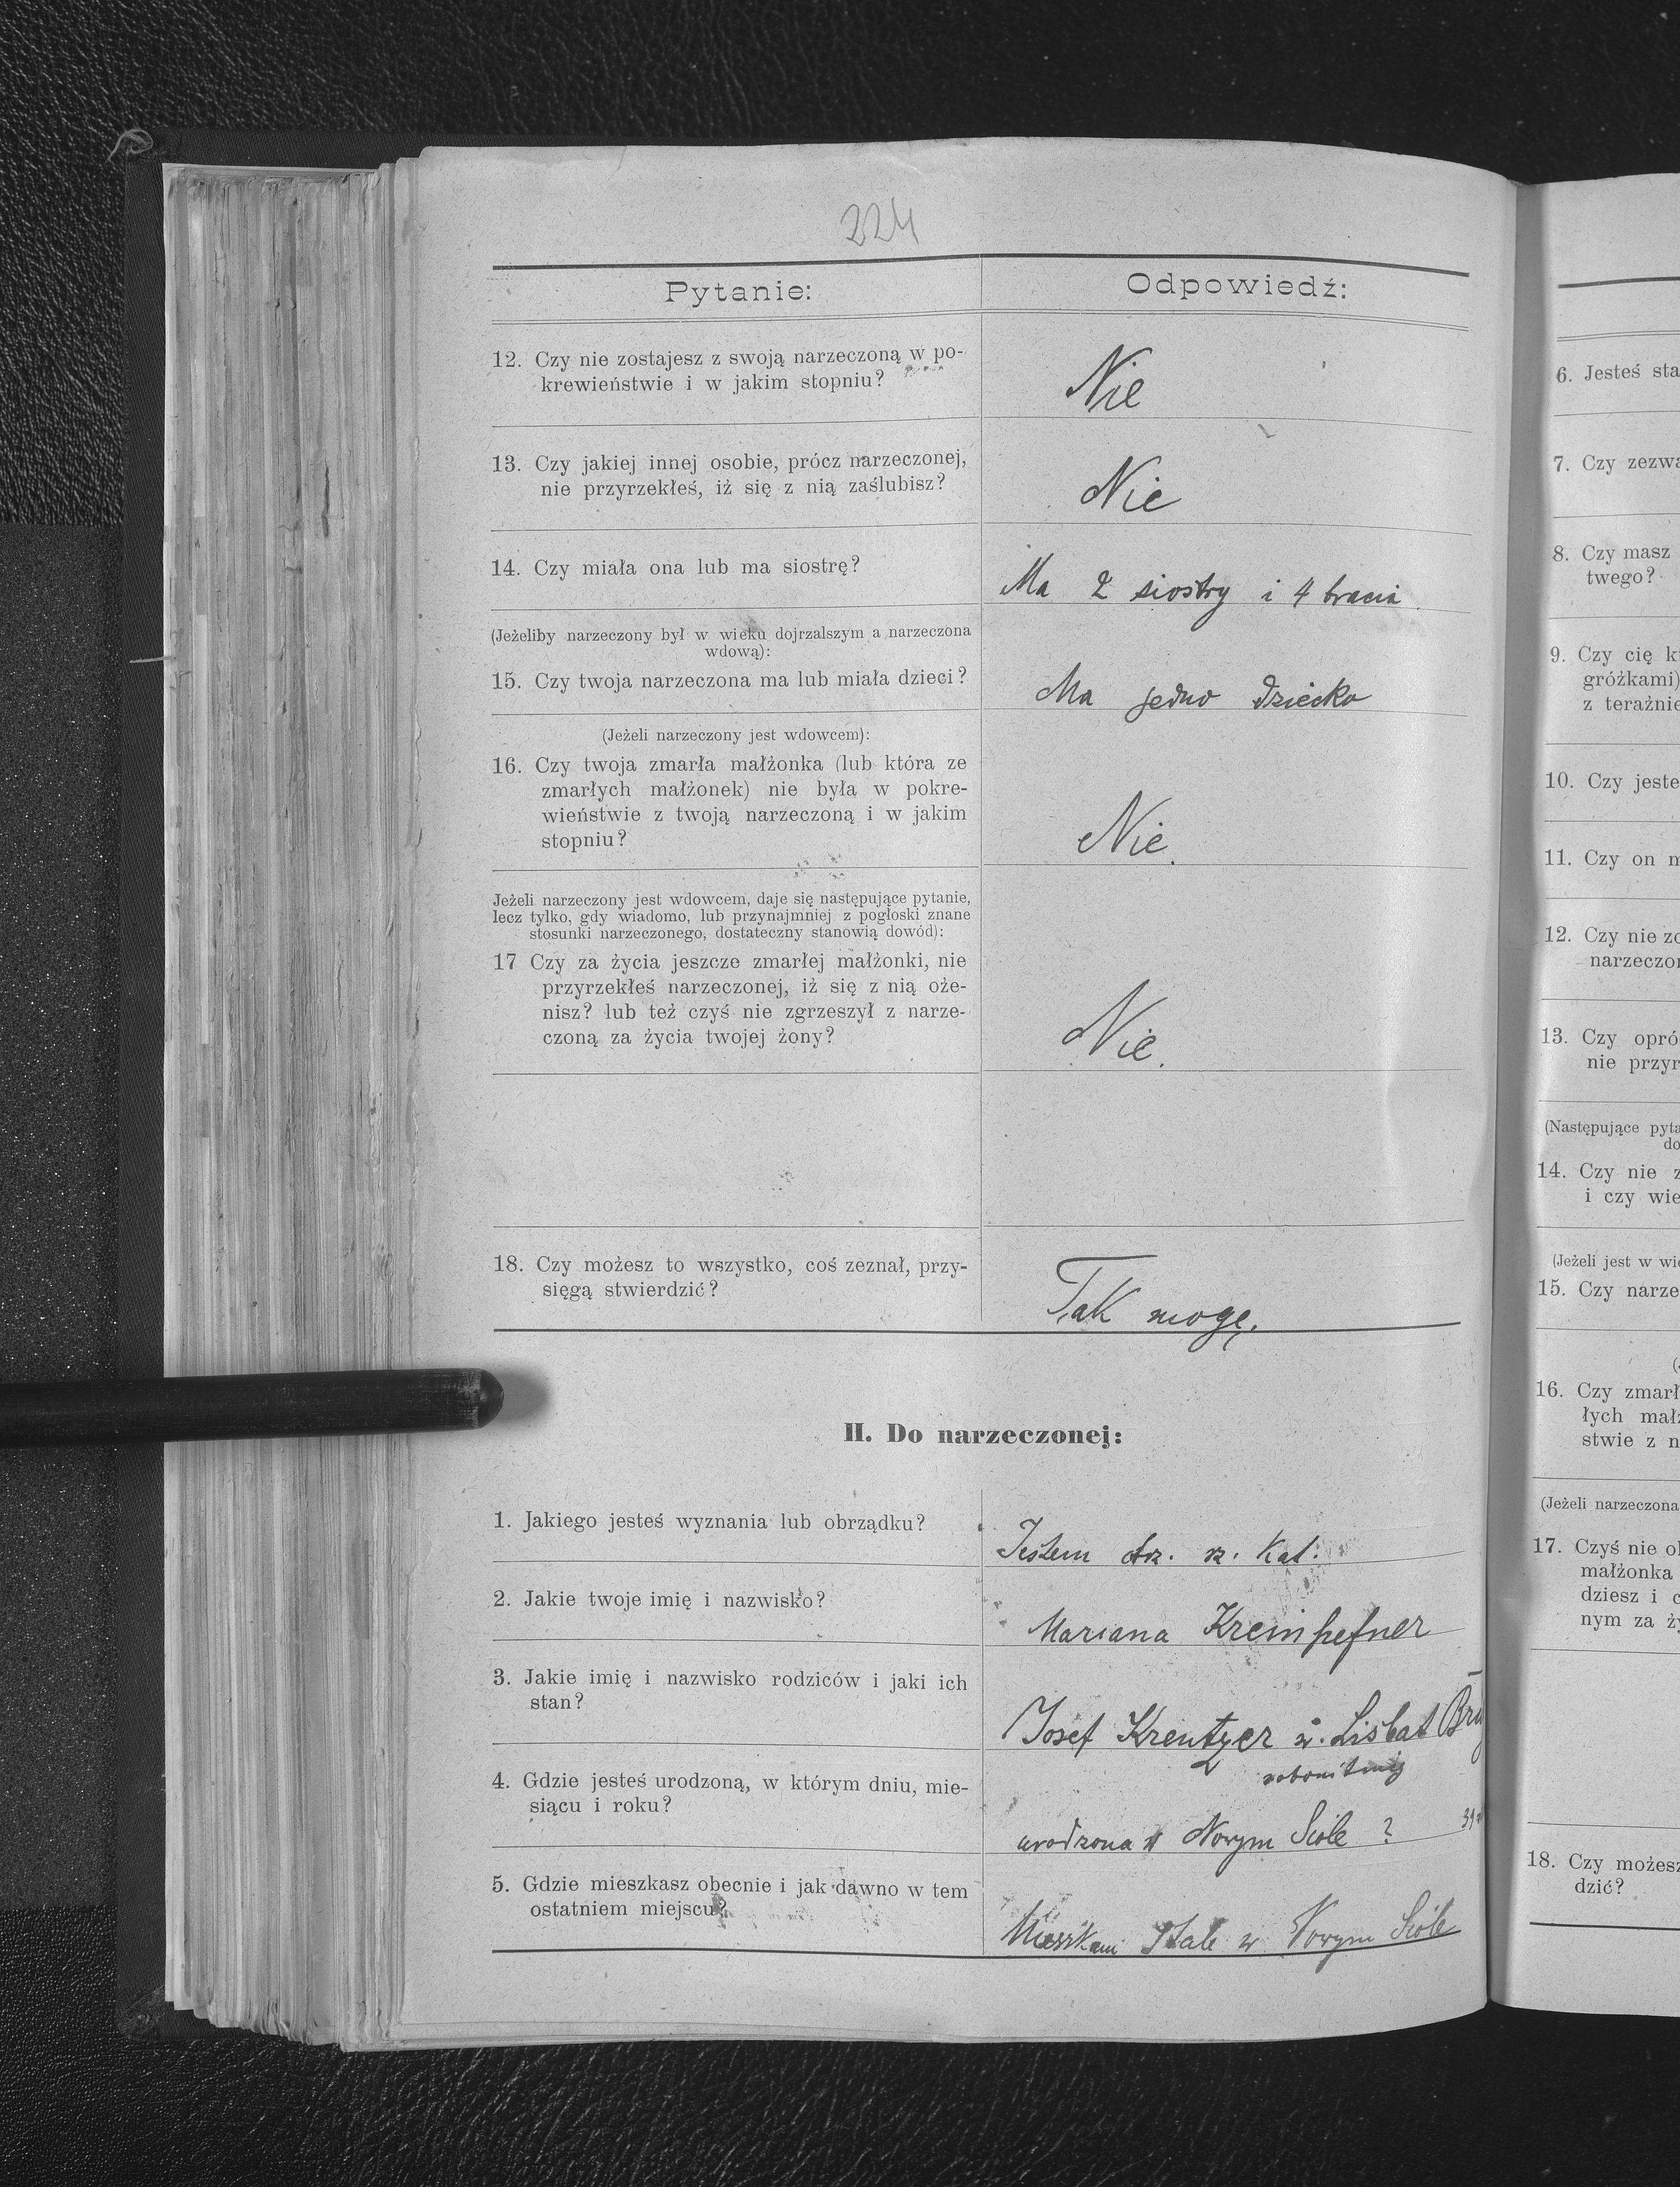 224
Pytanie:
Odpowiedź:
12. Czy nie zostajesz z swoją narzeczoną w po-
krewieństwie i w jakim stopniu?
Nie
13. Czy jakiej innej osobie, prócz narzeczonej,
nie przyrzekłeś, iż się z nią zaślubisz?
Nie
14. Czy miała ona lub ma siostrę?
Ma 2 siostry i 4 bracia
(Jeżeliby narzeczony był w wieku dojrzalszym a narzeczona
wdową):
15. Czy twoja narzeczona ma lub miała dzieci?
Ma jedno dziecko
(Jeżeli narzeczony jest wdowcem):
16. Czy twoja zmarła małżonka (lub która ze
zmarłych małżonek) nie była w pokre-
wieństwie z twoją narzeczoną i w jakim
stopniu?
Nie.
Jeżeli narzeczony jest wdowcem, daje się następujące pytanie,
lecz tylko, gdy wiadomo, lub przynajmniej z pogłoski znane
stosunki narzeczonego, dostateczny stanowią dowód):
17 Czy za życia jeszcze zmarłej małżonki, nie
przyrzekłeś narzeczonej, iż się z nią oże-
nisz? lub też czyś nie zgrzeszył z narze-
czoną za życia twojej żony?
Nie.
18. Czy możesz to wszystko, coś zeznał, przy-
sięgą stwierdzić?
Tak mogę.
II. Do narzeczonej:
1. Jakiego jesteś wyznania lub obrządku?
Jestem obrz. rz. Kat.
2. Jakie twoje imię i nazwisko?
Mariana
3. Jakie imię i nazwisko rodziców i jaki ich
stan?
Josef
4. Gdzie jesteś urodzoną, w którym dniu, mie-
siącu i roku?
urodzona w Nowym Siole ?
5. Gdzie mieszkasz obecnie i jak dawno w tem
ostatniem miejscu?
Mieszkam stale w Nowym Siole
6. Jesteś sta
7. Czy zezwa
8. Czy masz
twego?
9. Czy cię k
gróżkami)
z teraźnie
10. Czy jeste
11. Czy on m
12. Czy nie zo
narzeczon
13. Czy opró
nie przyr
(Następujące pyta
do
14. Czy nie z
i czy wie
(Jeżeli jest w wie
15. Czy narze
16. Czy zmarł
łych małż
stwie z n
(Jeżeli narzeczona
17. Czyś nie ob
małżonka
dziesz i c
nym za ży
18. Czy możesz
dzić?